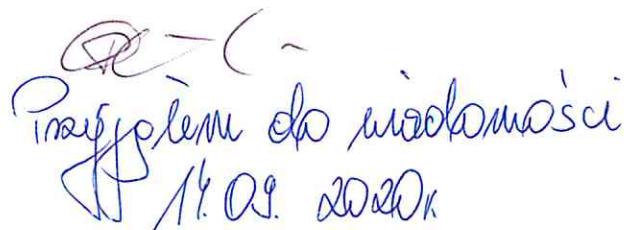 Przyjąłem do wiadomości
14.09. 2020r